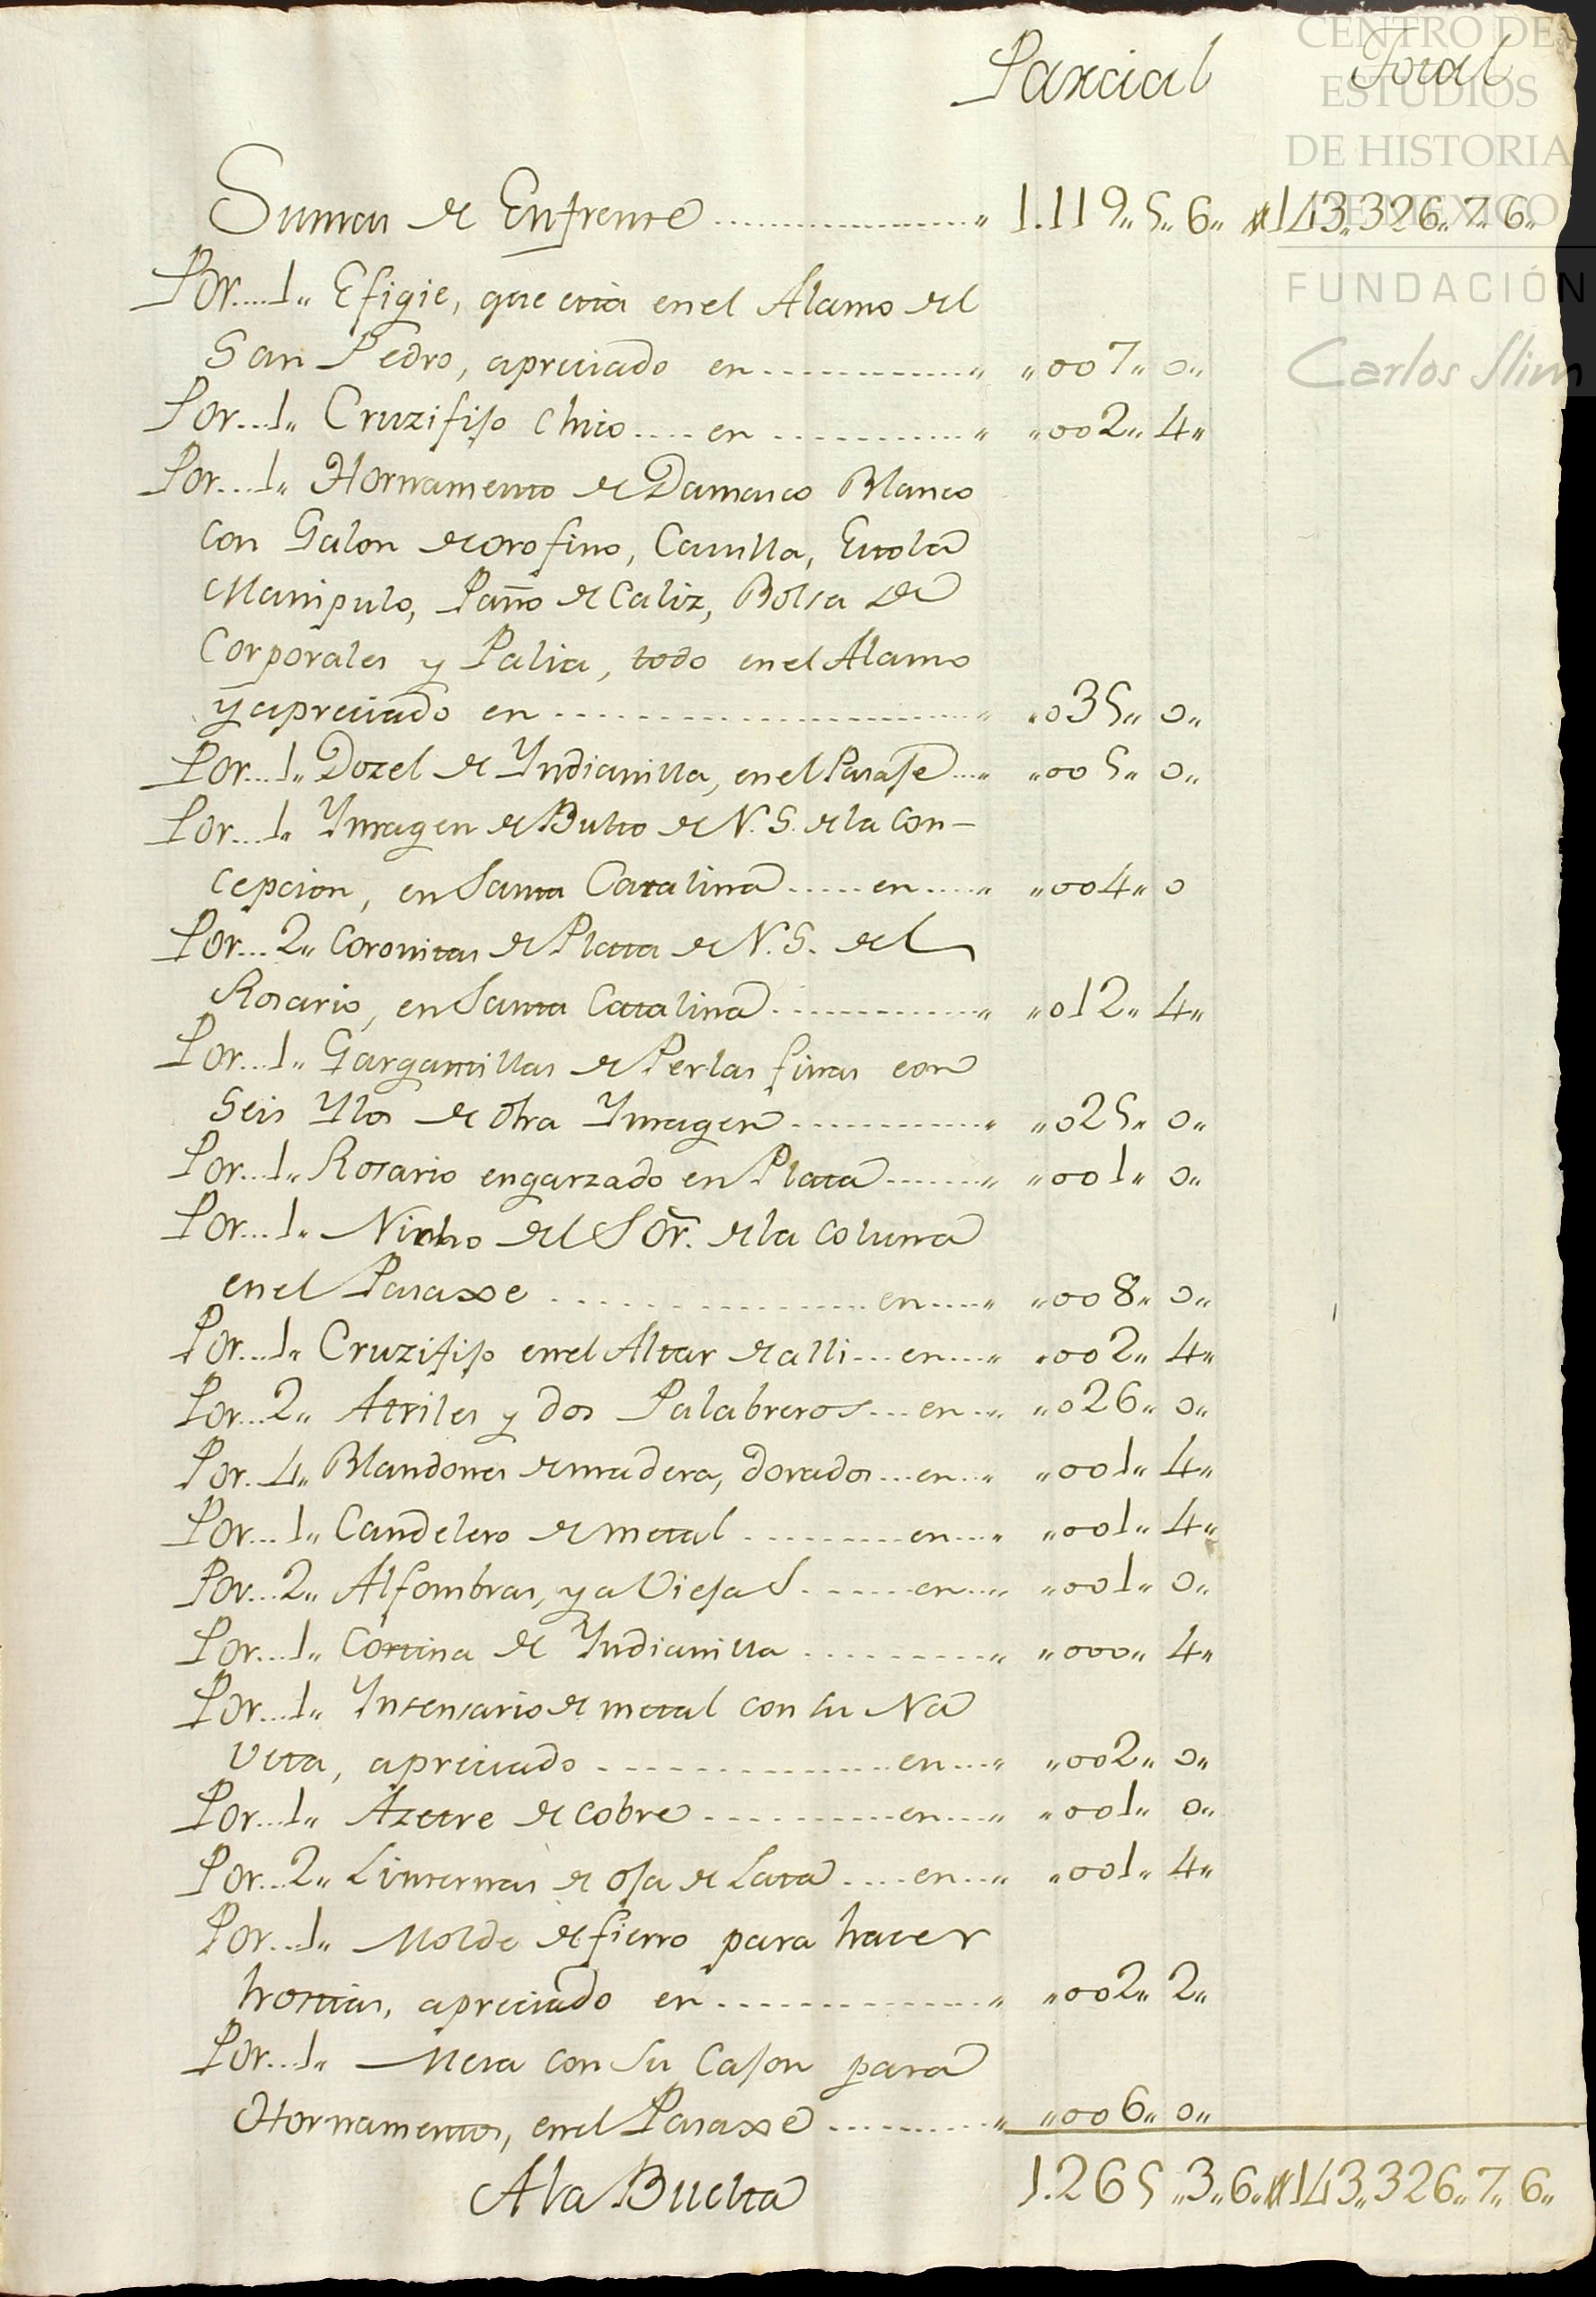 Parcial Total
Suma de Enfrente " 1.119,, 5,, 6,, 143,,326,, 7,, 6,,
Por....1,, Efigie, que está en el Alamo del
San Pedro, apreciado en " ,,007,, 0,,
Por...1,, Cruzifijo Chico.... en " ,,002,, 4,,
Por...1,, Hornamento de Damasco Blanco
con Galon de oro fino, Casulla, Estola
Manipulo, Paño de Caliz, Bolsa de
Corporales y Palia, todo en el Alamo
y apreciado en " ,,035,, 0,,
Por...1,, Dozel de Yndianilla, en el Parase " ,,005,, 0,,
Por...1,, Ymagen de Bulto de N. S. de la Con-
cepcion, en Santa Catalina.....en " ,,004,, 0
Por...2,, Coronitas de Plata de N. S. del
Rosario, en Santa Catalina " ,,012,, 4,,
Por...1,, Gargantillas de Perlas finas con
Seis Ylos de otra Ymagen " ,,025,, 0,,
Por...1,, Rosario engarzado en Plata " ,,001,, 0,,
Por...1,, Nicho del Sõr. de la Coluna
en el Paraxe en " ,,008,, 0,,
Por...1,, Cruzifijo en el Altar de alli...en " ,,002,, 4,,
Por...2,, Atriles y dos Palabreros...en " ,,026,, 0,,
Por..4,, Blandones de madera, dorados...en " ,,001,, 4,,
Por...1,, Candelero de metal en " ,,001,, 4,,
Por...2,, Alfombras, ya Viejas en " ,,001,, 0,,
Por...1,, Cortina de Yndianilla " ,,000,, 4,,
Por...1,, Ynsensario de metal con su Na
veta, apreciado en " ,,002,, 0,,
Por...1,, Azetre de cobre en " ,,001,, 0,,
Por...2,, Linternas de oja de Lata....en " ,,001,, 4,,
Por...1,, Molde de fierro para hacer
hostias, apreciado en " ,,002,, 2,,
Por...1,, Mesa con su Cajon para
Hornamentos, en el Paraxe " ,,006,, 0,,
A la Buelta 1.265,,3,,6,, 143,,326,, 7,, 6,,
CENTRO DE
ESTUDIOS
DE HISTORIA
DE MEXICO
FUNDACIÓN
Carlos Slim